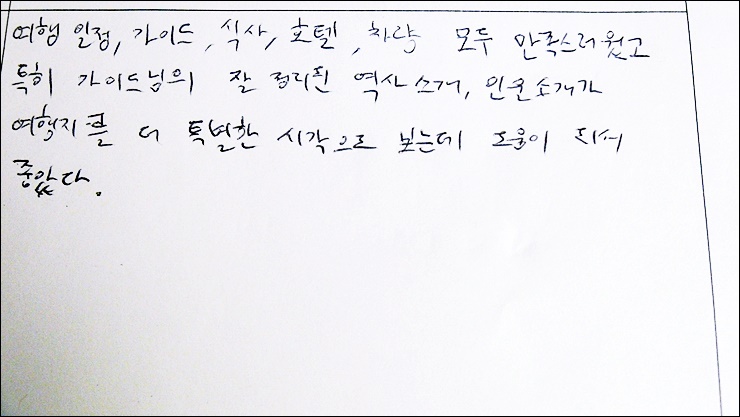 여행 일정, 가이드, 식사, 호텔, 차량 모두 만족스러웠고
특히 가이드님의 잘 정리된 역사소개, 인물소개가
여행지를 더 특별한 시각으로 보는데 도움이 되서
좋았다.